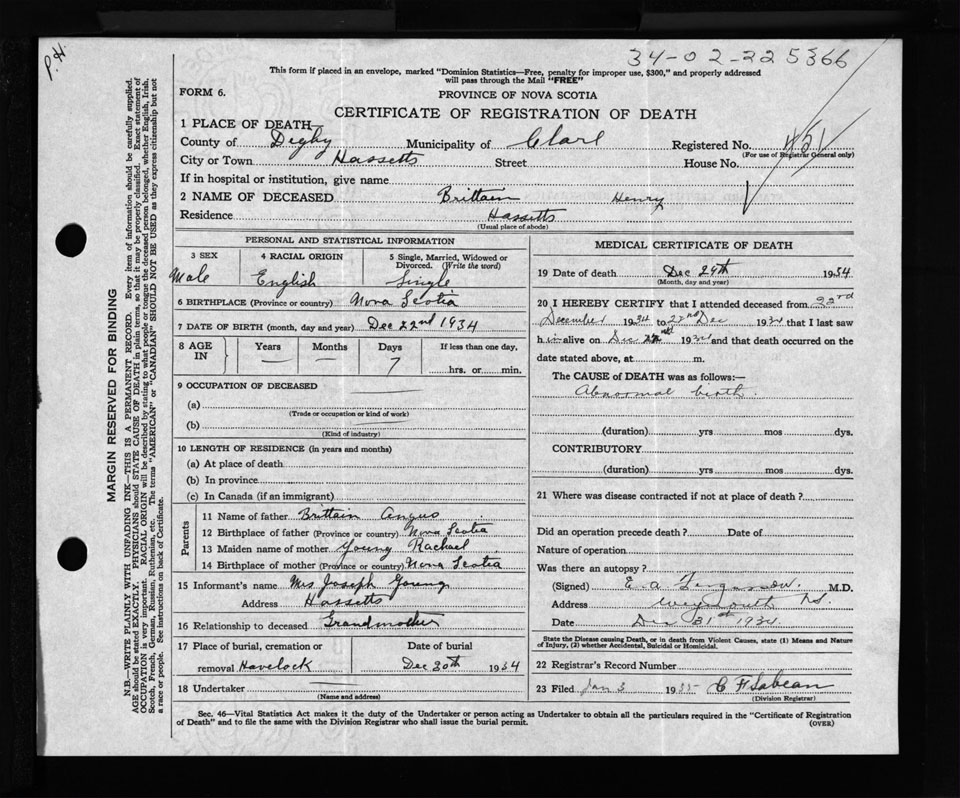 P.H
34-02-225366
This form if placed in an envelope, marked "Dominion Statistics—Free, penalty for improper use, $300," and properly addressed
will pass through the Mail "FREE"
FORM 6.
PROVINCE OF NOVA SCOTIA
CERTIFICATE OF REGISTRATION OF DEATH
1 PLACE OF DEATH—
County of Digby Municipality of Clare Registered No. 451
(For use of Registrar General only)
City or Town Hassetts Street House No.
If in hospital or institution, give name
2 NAME OF DECEASED Brittain Henry
Residence Hassetts
(Usual place of abode)
PERSONAL AND STATISTICAL INFORMATION
3 SEX 4 RACIAL ORIGIN 5 Single, Married, Widowed or
Divorced. (Write the word)
Male English Single
6 BIRTHPLACE (Province or country) Nova Scotia
7 DATE OF BIRTH (month, day and year) Dec 22nd 1934
8 AGE IN Years Months Days If less than one day,
— — 7 hrs. or min.
9 OCCUPATION OF DECEASED
(a)
(Trade or occupation or kind of work)
(b)
(Kind of industry)
10 LENGTH OF RESIDENCE (in years and months)
(a) At place of death
(b) In province
(c) In Canada (if an immigrant)
Parents
11 Name of father Brittain Angus
12 Birthplace of father (Province or country) Nova Scotia
13 Maiden name of mother Young Rachael
14 Birthplace of mother (Province or country) Nova Scotia
15 Informant's name Mrs Joseph Young
Address Hassetts
16 Relationship to deceased Grandmother
17 Place of burial, cremation or Date of burial
removal Havelock Dec 30th 1934
18 Undertaker
(Name and address)
MEDICAL CERTIFICATE OF DEATH
19 Date of death Dec 29th 1934
(Month, day and year)
20 I HEREBY CERTIFY that I attended deceased from 22nd
December 1934 to 22nd Dec 1934 that I last saw
h im alive on Dec 22nd 1934 and that death occurred on the
date stated above, at m.
The CAUSE of DEATH was as follows:—
Abnormal birth.
(duration) yrs mos dys.
CONTRIBUTORY
(duration) yrs mos dys.
21 Where was disease contracted if not at place of death?
Did an operation precede death? Date of
Nature of operation
Was there an autopsy?
(Signed) E. A. M.D.
Address Weymouth N.S.
Date Dec 31st 1934.
State the Disease causing Death, or in death from Violent Causes, state (1) Means and Nature
of Injury, (2) whether Accidental, Suicidal or Homicidal.
22 Registrar's Record Number
23 Filed Jan 3 1935 C F Sabean
(Division Registrar)
Sec. 46—Vital Statistics Act makes it the duty of the Undertaker or person acting as Undertaker to obtain all the particulars required in the "Certificate of Registration
of Death" and to file the same with the Division Registrar who shall issue the burial permit.
(OVER)
MARGIN RESERVED FOR BINDING
N.B.—WRITE PLAINLY WITH UNFADING INK—THIS IS A PERMANENT RECORD. Every item of information should be carefully supplied.
AGE should be stated EXACTLY. PHYSICIANS should STATE CAUSE OF DEATH in plain terms, so that it may be properly classified. Exact statement of
OCCUPATION is very important. RACIAL ORIGIN will be described by stating to what people or tongue the deceased person belonged, whether English, Irish,
Scotch, French, German, Russian, Ruthenian, etc. The terms "AMERICAN" or "CANADIAN" SHOULD NOT BE USED as they express citizenship but not
a race or people. See Instructions on back of Certificate.